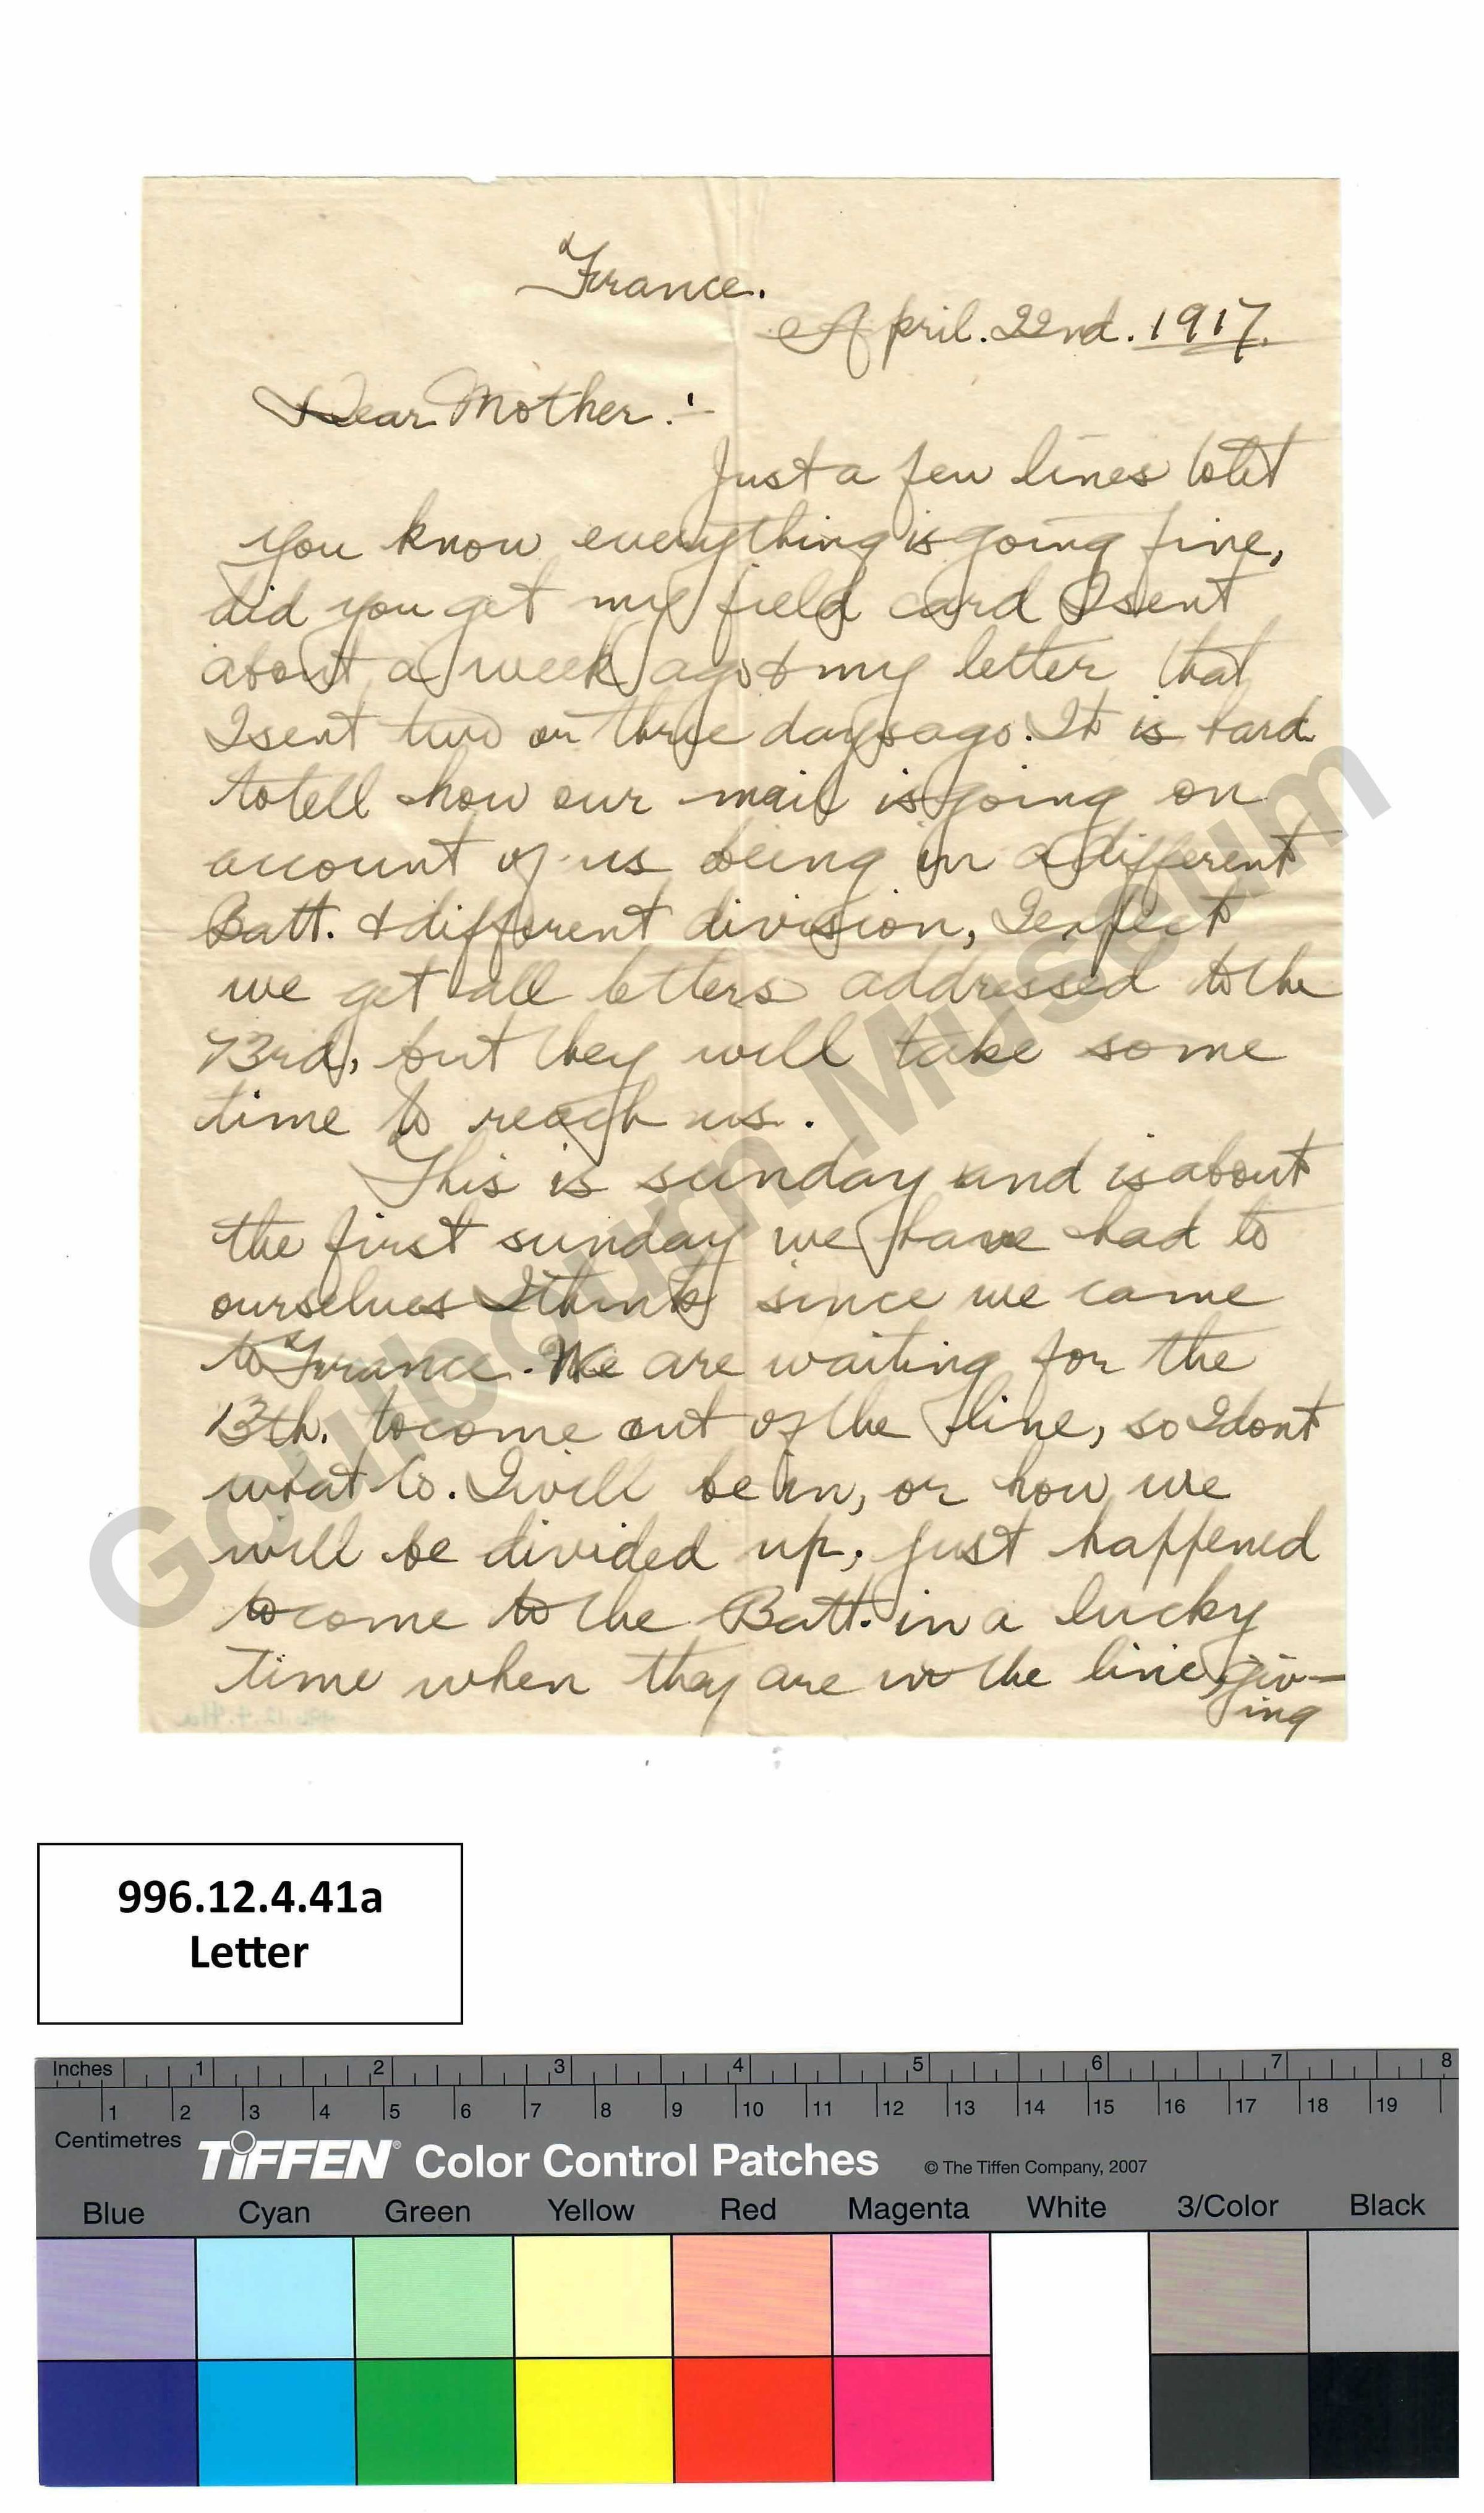 France.
April. 22nd. 1917.
Dear Mother:-
Just a few lines to let
you know everything is going fine,
did you get my field card I sent
about a week ago & my letter that
I sent two or three days ago. It is hard
to tell how our mail is going on
account of us being in a different
Batt. & different division, I expect
we get all letters addressed to the
73rd, but they will take some
time to reach us.
This is sunday and is about
the first sunday we have had to
ourselves I think since we came
to France. We are waiting for the
13th. to come out of the line, so I dont
what Co. I will be in, or how we
will be divided up, just happened
to come to the Batt. in a lucky
time when they are in the line, giv-
ing
Goulbourn Museum
996.12.4.41a
Letter
Inches 1 2 3 4 5 6 7 8
1 2 3 4 5 6 7 8 9 10 11 12 13 14 15 16 17 18 19
Centimetres
TIFFEN® Color Control Patches © The Tiffen Company, 2007
Blue Cyan Green Yellow Red Magenta White 3/Color Black